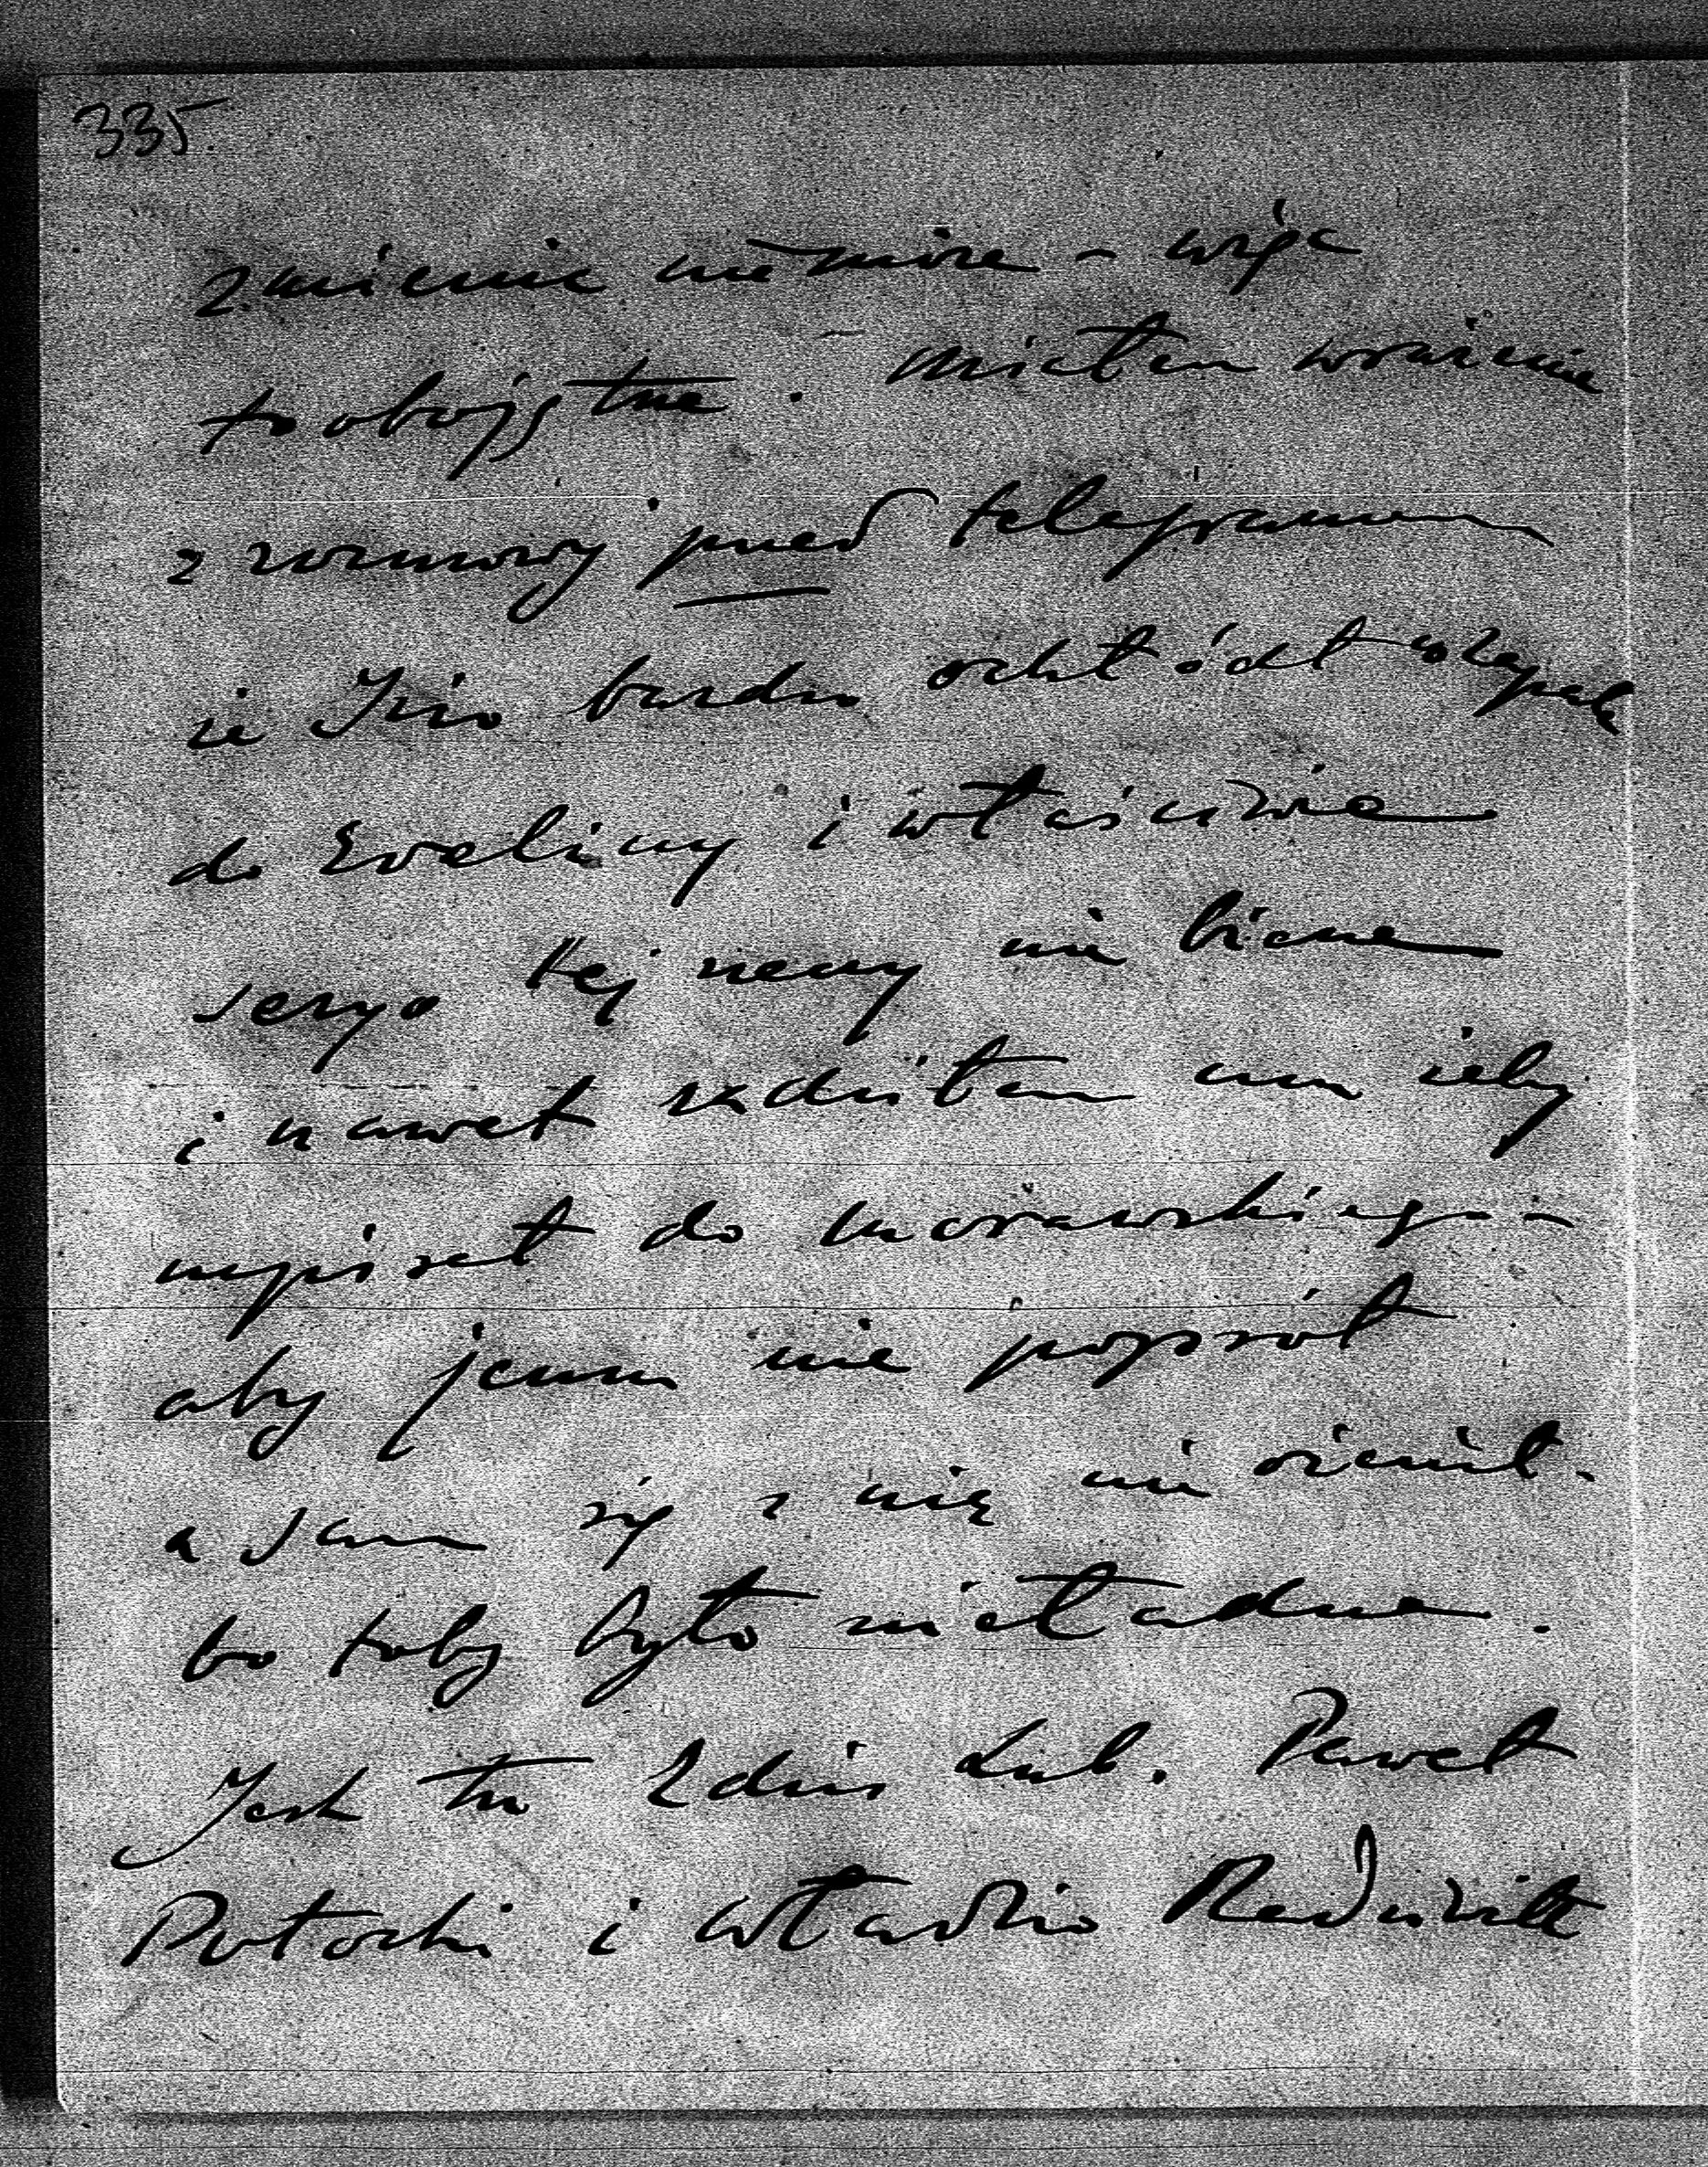 335.
zmienić nie może – więc
to obojętne. Miałem wrażenie
z rozmowy przed telegramem
że Izio bardzo ochłódł w zapale
do Eveliny i właściwie
seryo tej rzeczy nie bierze
i nawet radziłem mu żeby
napisał do Morawskiego –
aby jemu nie popsół
a sam się z nią nie ożenił –
bo toby było nieładne.
Jest tu Zdziś Lub. Paweł
Potocki i Władzio Radziwiłł